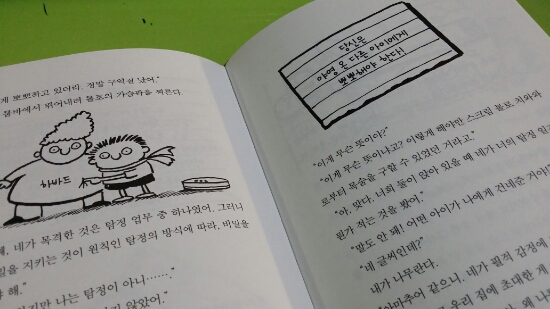 게 뽀뽀하고 있더라. 정말 구역질 났어."
물바에서 뛰어내려 불초의 가슴팍을 찌른다.
하바드
네가 목격한 것은 탐정 업무 중 하나였어. 그러니
일을 지키는 것이 원칙인 탐정의 방식에 따라, 비밀을
해."
지만 나는 탐정이 아니……."
않았어."
당신은
야영 온 다른 아이에게
뽀뽀해야 한다!
"이게 무슨 뜻이야?"
"이게 무슨 뜻이냐고? 어떻게 해야만 스크림 볼로 치와와
로부터 목숨을 구할 수 있었던 거라고."
"아, 맞다. 너희 둘이 앉아 있을 때 네가 너의 탐정 일
뭔가 적는 것을 봤어."
"말도 안 돼! 어떤 아이가 나에게 건네준 거야!
"네 글씨인데?"
내가 나무란다.
"아마추어 같으니. 네가 필적 감정에
우리 집에 초대한 게
왜 나